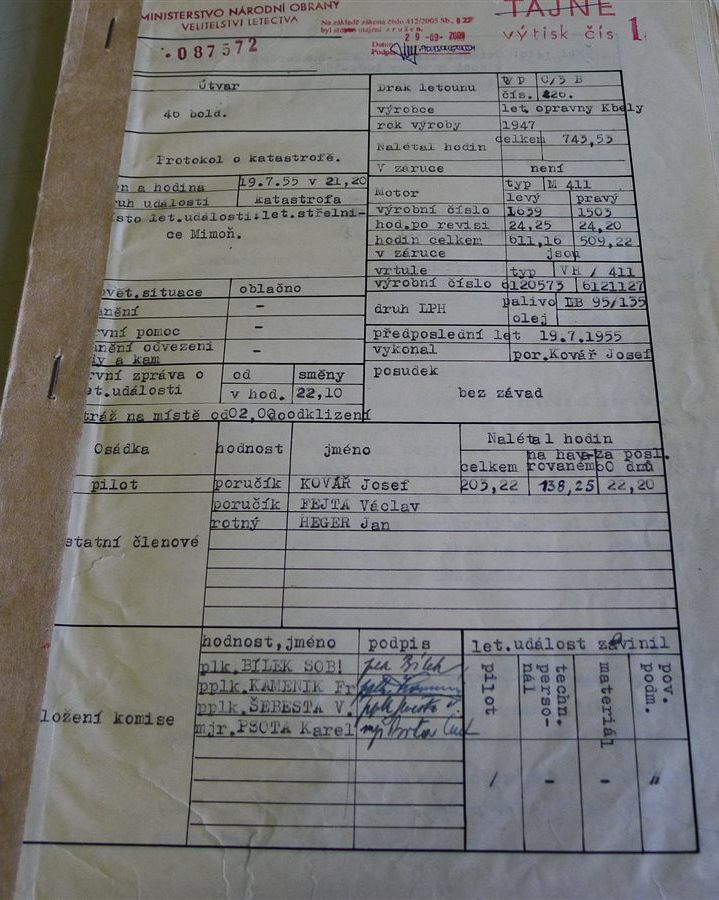 MINISTERSTVO NÁRODNÍ OBRANY
VELITELSTVÍ LETECTVA
Na základě zákona číslo 412/2005 Sb.
byl stupeň utajení zrušen.
29-09-2009
Datum
Podpis
TAJNÉ
výtisk čís 1.
087572
Útvar
46 bold.
Protokol o katastrofě.
en a hodina 19.7.55 v 21,20
ruh události katastrofa
ísto let.události:let.střelni-
ce Mimoň.
Drak letounu typ C/3 B
čís. 220.
výrobce let. opravny Kbely
rok výroby 1947
Nalétal hodin celkem 743,53
V záruce není
Motor typ M 411
levý pravý
výrobní číslo 1639 1503
hod.po revisi 24,25 24,20
hodin celkem 611,16 509,22
v záruce jsou
vrtule typ VH / 411
výrobní číslo 6120573 6121127
druh LPH palivo LB 95/135
olej
předposlední let 19.7.1955
vykonal por.Kovář Josef
posudek
bez závad
ovět.situace oblačno
anění -
rvní pomoc -
anění odvezeni
dy a kam -
rvní zpráva o
et.události od směny
v hod. 22,10
tráž na místě od 02,00 do odklizení
Osádka hodnost jméno Nalétal hodin
celkem na hava-
rovaném za posl.
60 dnů
pilot poručík KOVÁŘ Josef 203,22 138,25 22,20
poručík FEJTA Václav
rotný HEGER Jan
statní členové
hodnost,jméno podpis let.událost zavinil
pilot
techn.
perso-
nál
materiál
pov.
podm.
plk.BÍLEK SOB!
pplk.KAMENÍK Fr
pplk.ŠEBESTA V.
mjr.PSOTA Karel
ložení komise
/ - - "